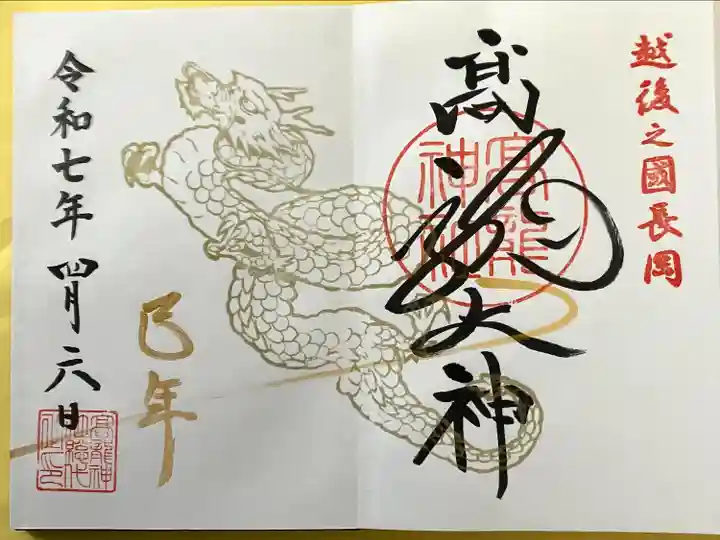 越後之國長岡
高龍大神
高龍
神社
巳年
令和七年 四月六日
高龍神
社総代
之印